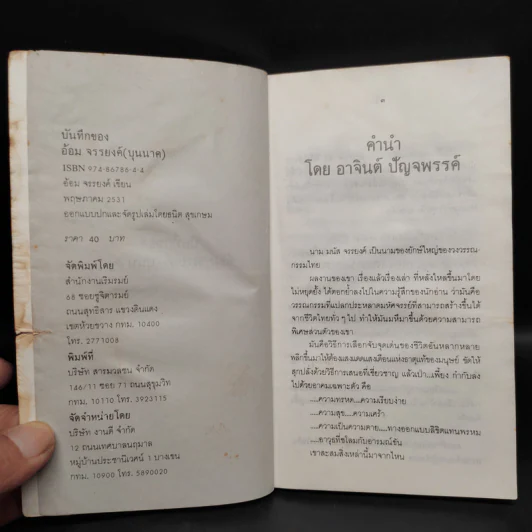 บันทึกของ
อ้อม จรรยงค์(บุนนาค)
ISBN 974-86786-4-4
อ้อม จรรยงค์ เขียน
พฤษภาคม 2531
ออกแบบปกและจัดรูปเล่มโดยธนิต สุขเกษม
ราคา 40 บาท
จัดพิมพ์โดย
สำนักงานเริงรมย์
68 ซอยชูจิตารมย์
ถนนสุทธิสาร แขวงดินแดง
เขตห้วยขวาง กทม. 10400
โทร. 2771008
พิมพ์ที่
บริษัท สารมวลชน จำกัด
146/11 ซอย 71 ถนนสุขุมวิท
กทม. 10110 โทร. 3923115
จัดจำหน่ายโดย
บริษัท งานดี จำกัด
12 ถนนเทศบาลนฤมาล
หมู่บ้านประชานิเวศน์ 1 บางเขน
กทม. 10900 โทร. 5890020
๓
คำนำ
โดย อาจินต์ ปัญจพรรค์
นาม มนัส จรรยงค์ เป็นนามของยักษ์ใหญ่ของวงวรรณ-
กรรมไทย
ผลงานของเขา เรื่องแล้วเรื่องเล่า ที่หลั่งไหลขึ้นมาโดย
ไม่หยุดยั้ง ได้ตอกย้ำลงไปในความรู้สึกของนักอ่าน ว่ามันคือ
วรรณกรรมที่แปลกประหลาดมหัศจรรย์ที่สามารถสร้างขึ้นได้
จากชีวิตไทย ทั่ว ๆ ไป ทำให้มันมหึมาขึ้นด้วยความสามารถ
พิเศษส่วนตัวของเขา
มันคือวิธีการเลือกจับจุดเด่นของชีวิตอันหลากหลาย
พลิกขึ้นมาให้ต้องแสงแดดแสงเดือนแห่งธาตุแท้ของมนุษย์ ขัดให้
สุกปลั่งด้วยวิธีการเสนอที่เชี่ยวชาญ แล้วเป่า...เพี้ยง กำกับลง
ไปด้วยอาคมเฉพาะตัว คือ
....ความทรหด....ความเรียบง่าย
....ความสุข....ความเศร้า
....ความเป็นความตาย....ทางออกแบบลิขิตแทนพรหม
....อาวุธที่ชโลมกับอารมณ์ขัน
เขาสะสมสิ่งเหล่านี้มาจากไหน